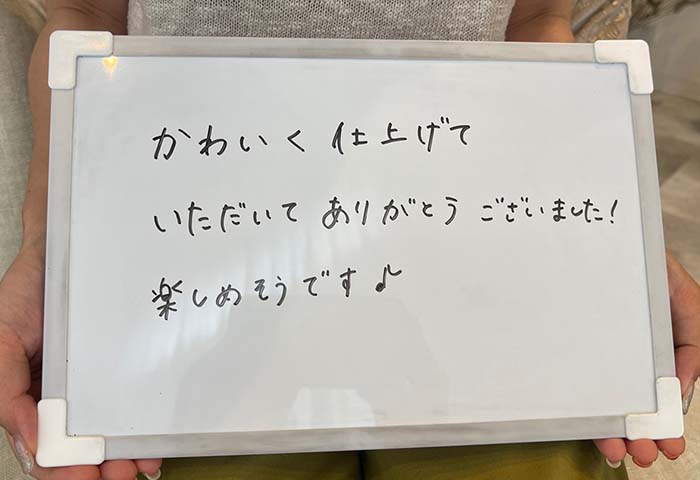 かわいく 仕上げて
いただいて ありがとう ございました!
楽しめそうです♪